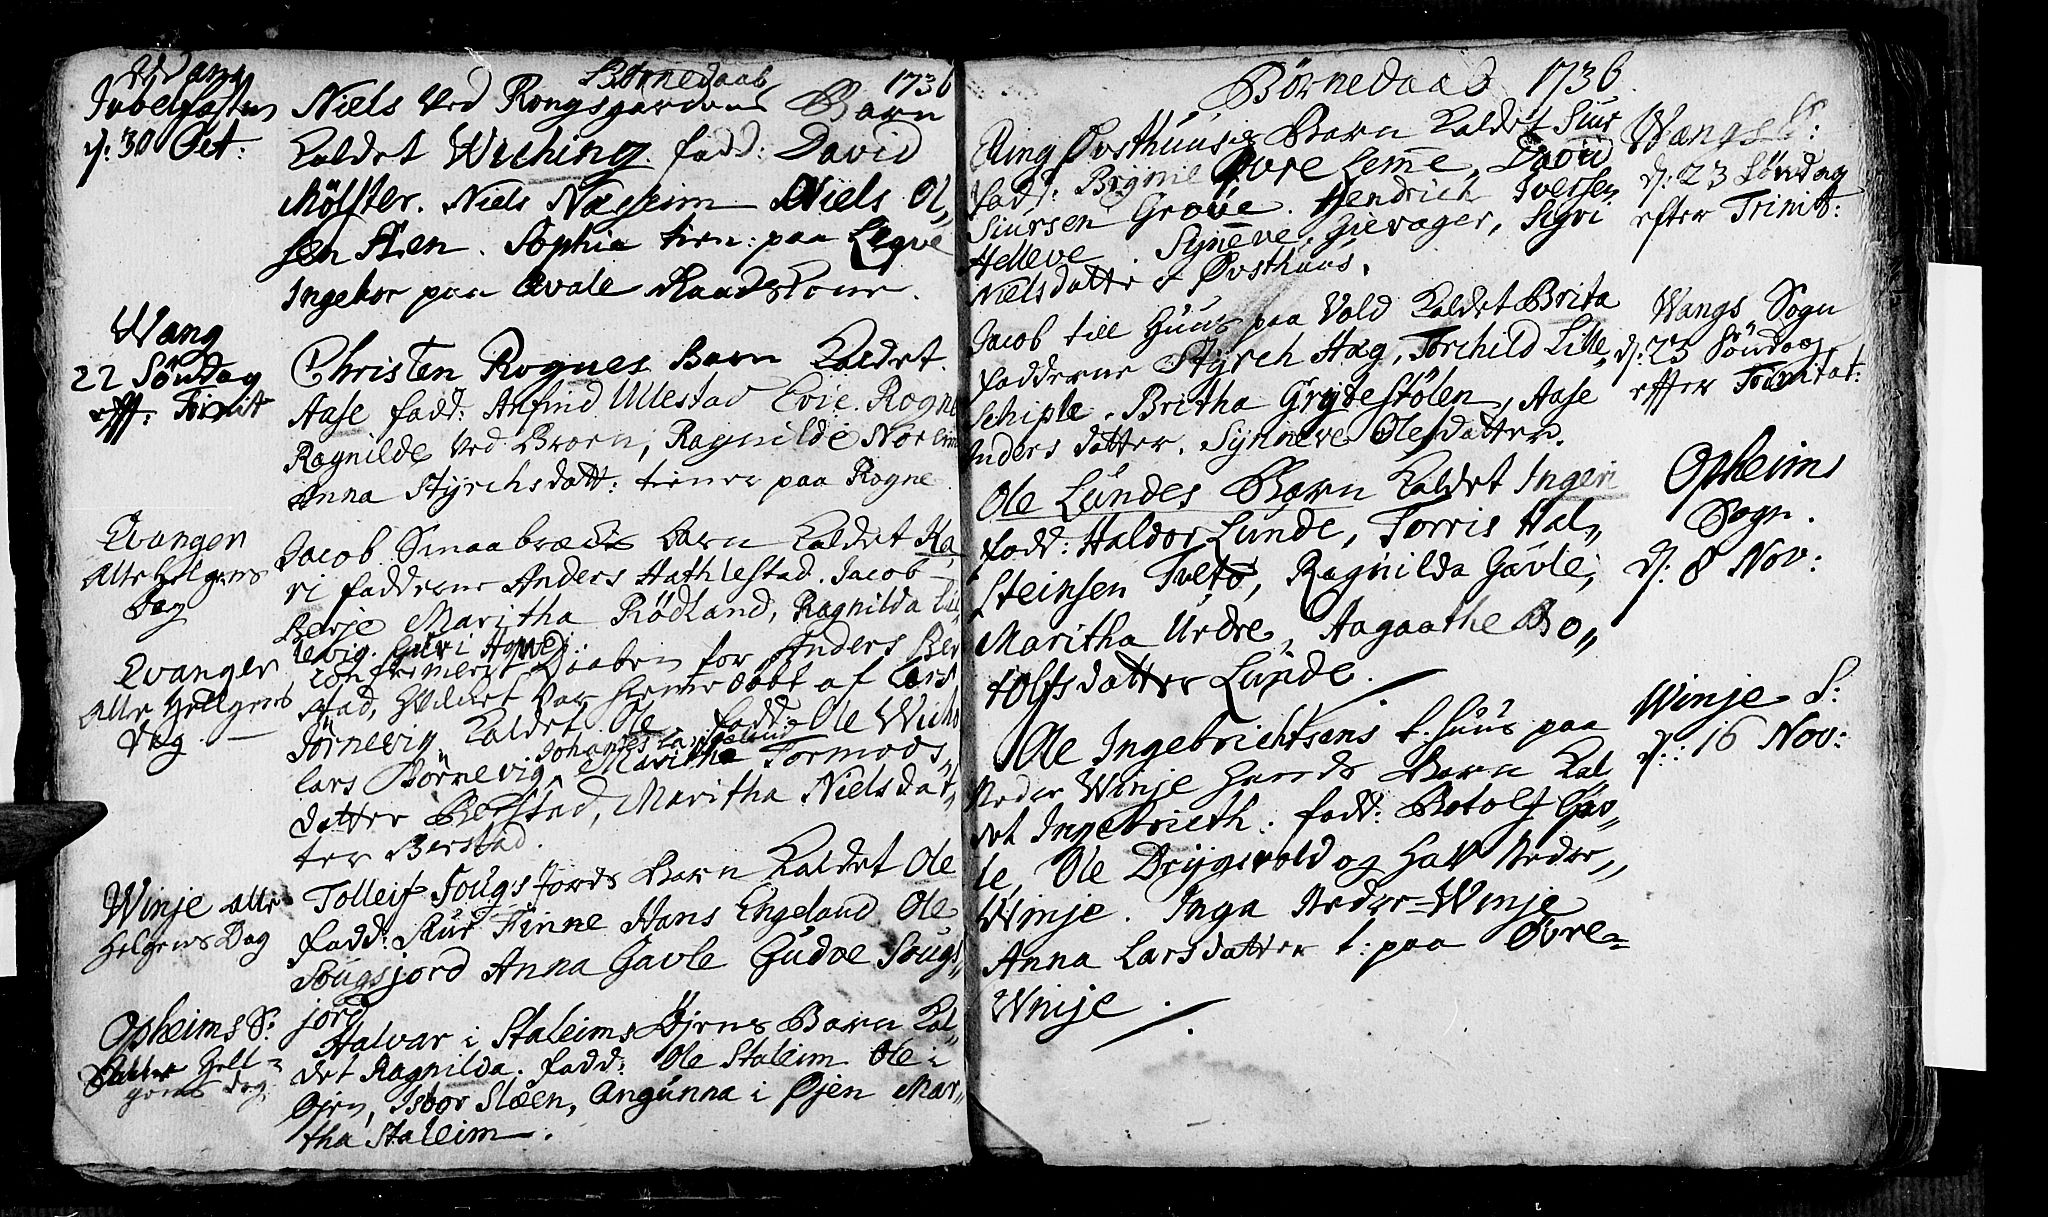 Børnedaab 1736
Wang
Jubelfæsten
d: 30 Oct:
Niels ved Rongsgardens Barn
Kaldet Wiching. fadd: David
Mölster. Niels Næsheim Niels Ol„
sen Steen. Sophia tien: paa Leqve
Ingebor paa Qvale
Wang
22 Söndag
eff: Trinit
Christen Rognes Barn Kaldet
Aase fadd: Anfind Ullestad Evie. Rogne
Ragnilde ved Broen, Ragnilde Norheim
Anna Styrchsdatt: tiener paa Rogne
Evanger
Alle Helgens
Dag
Jacob Smaabræcke Barn Kaldet Ka„
ri fadderne Anders Hathlestad. Jacob
Berje Maritha Rödland, Ragnilda Lil„
levig. Guri
Evanger
Alle Helgens
Dag
Confirmerit Daaben for Anders Ber
stad, hvilket var hiemedöbt af Lars
Jörnevig, Kaldet Ole. fadd: Ole Wichs
Johannes
lars Börnevig, Maritha Tormods„
datter Berstad, Maritha Nielsdat„
ter Berstad.
Winje alle
Helgens Dag
Tolleif Sougsjords Barn Kaldet Ole
fadd: Siur Finne Hans Engeland Ole
Sougsjord Anna Gavle Gudve Sougs„
jord
Opheims S:
Helle=
gens dag
Halvar i Staleims Öjens Barn Kal„
det Ragnilda. fadd: Ole Staleim Ole i
Öjen, Isbor Slæen, Angunna i Øjen Mar„
tha Staleim.
Börnedaab 1736
Elling Øvsthuusis Barn Kaldet Siur
fadd: Brynie Øvre Lem̄e, David
Siursen Grove. Hendrich Iverssen
Helleve. Synēve Gievager, Sigvi
Nielsdatter Øvsthuus.
Wangs S:
d: 23 Söndag
efter Trinit:
Jacob till Huus paa Vold Kaldet Brita
fadderne Styrch Hæg, Torchild Lille„
Schiple. Britha Grydestölen, Aase
Andersdatter. Synneve Olesdatter.
Wangs Sogn
d: 23 Söndag
effter Trinitat:
Ole Lundes Barn Kaldet Ingeri
fadd: Haldor Lunde, Torris Hal„
steinsen Tveto, Ragnilda Gavle,
Maritha Urdre, Aagaathe Bo„
tolfsdatter Lunde.
Opheims
Sogn.
d: 8 Nov:
Ole Ingebrichtsens t. huus paa
Neder Winje Barn Kal„
det Ingebrieth: fadd: Botolf Gav„
le, Ole Drÿgsvold og Hall Neder„
Winje. Inga Neder=Winje
Anna Larsdatter t: paa Øvre=
Winje.
Winje S:
d: 16 Nov: